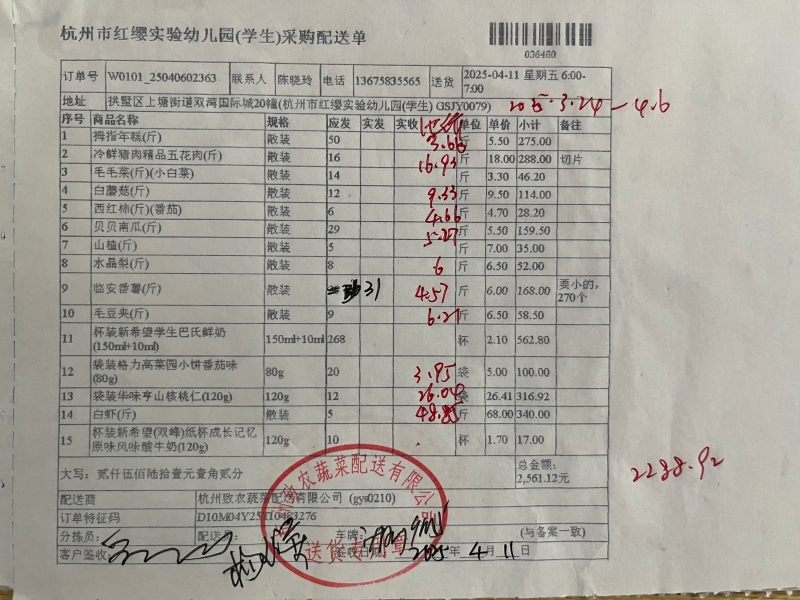 杭州市红缨实验幼儿园(学生)采购配送单
036480
订单号 W0101_25040602363 联系人 陈晓玲 电话 13675835565 送货 2025-04-11 星期五 6:00-7:00
地址 拱墅区上塘街道双湾国际城20幢(杭州市红缨实验幼儿园(学生) GSJY0079)
2025.3.24-4.6
序号 商品名称 规格 应发 实发 实收 单位 单价 小计 备注
1 拇指年糕(斤) 散装 50 3.66 斤 5.50 275.00
2 冷鲜猪肉精品五花肉(斤) 散装 16 16.94 斤 18.00 288.00 切片
3 毛毛菜(斤)(小白菜) 散装 14 斤 3.30 46.20
4 白蘑菇(斤) 散装 12 9.33 斤 9.50 114.00
5 西红柿(斤)(番茄) 散装 6 4.66 斤 4.70 28.20
6 贝贝南瓜(斤) 散装 29 5.27 斤 5.50 159.50
7 山楂(斤) 散装 5 斤 7.00 35.00
8 水晶梨(斤) 散装 8 6 斤 6.50 52.00
9 临安番薯(斤) 散装 31 4.57 斤 6.00 168.00 要小的，270个
10 毛豆夹(斤) 散装 9 6.21 斤 6.50 58.50
11 杯装新希望学生巴氏鲜奶(150ml+10ml) 150ml+10ml 268 杯 2.10 562.80
12 袋装格力高菜园小饼番茄味(80g) 80g 20 3.95 袋 5.00 100.00
13 袋装华味亨山核桃仁(120g) 120g 12 26.04 袋 26.41 316.92
14 白虾(斤) 散装 5 斤 68.00 340.00
15 杯装新希望(双峰)纸杯成长记忆原味风味酸牛奶(120g) 120g 10 杯 1.70 17.00
大写：贰仟伍佰陆拾壹元壹角贰分 总金额：2,561.12元
2288.92
配送商 杭州致农蔬菜配送有限公司 (gys0210)
订单特征码 D10M04Y25T10483276
分拣员： 配送 车牌： (与备案一致)
客户签收 签收日期 2025年 4月 11日
农蔬菜配送有限公司
送货专用章